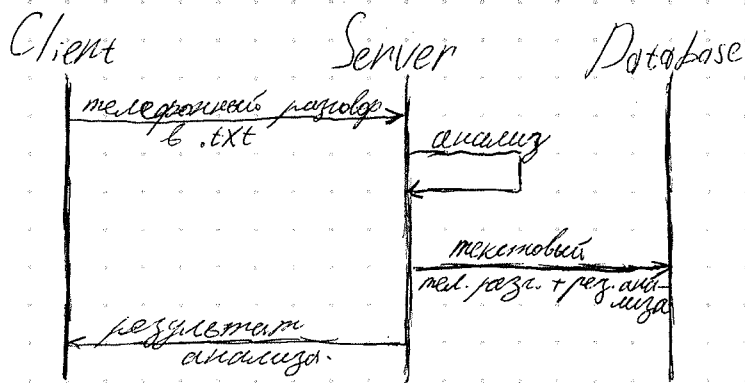 Client Server Database
телефонный разговор
в .txt
анализ
текстовый
тел. разг. + рез. ана-
лиза
результат
анализа.